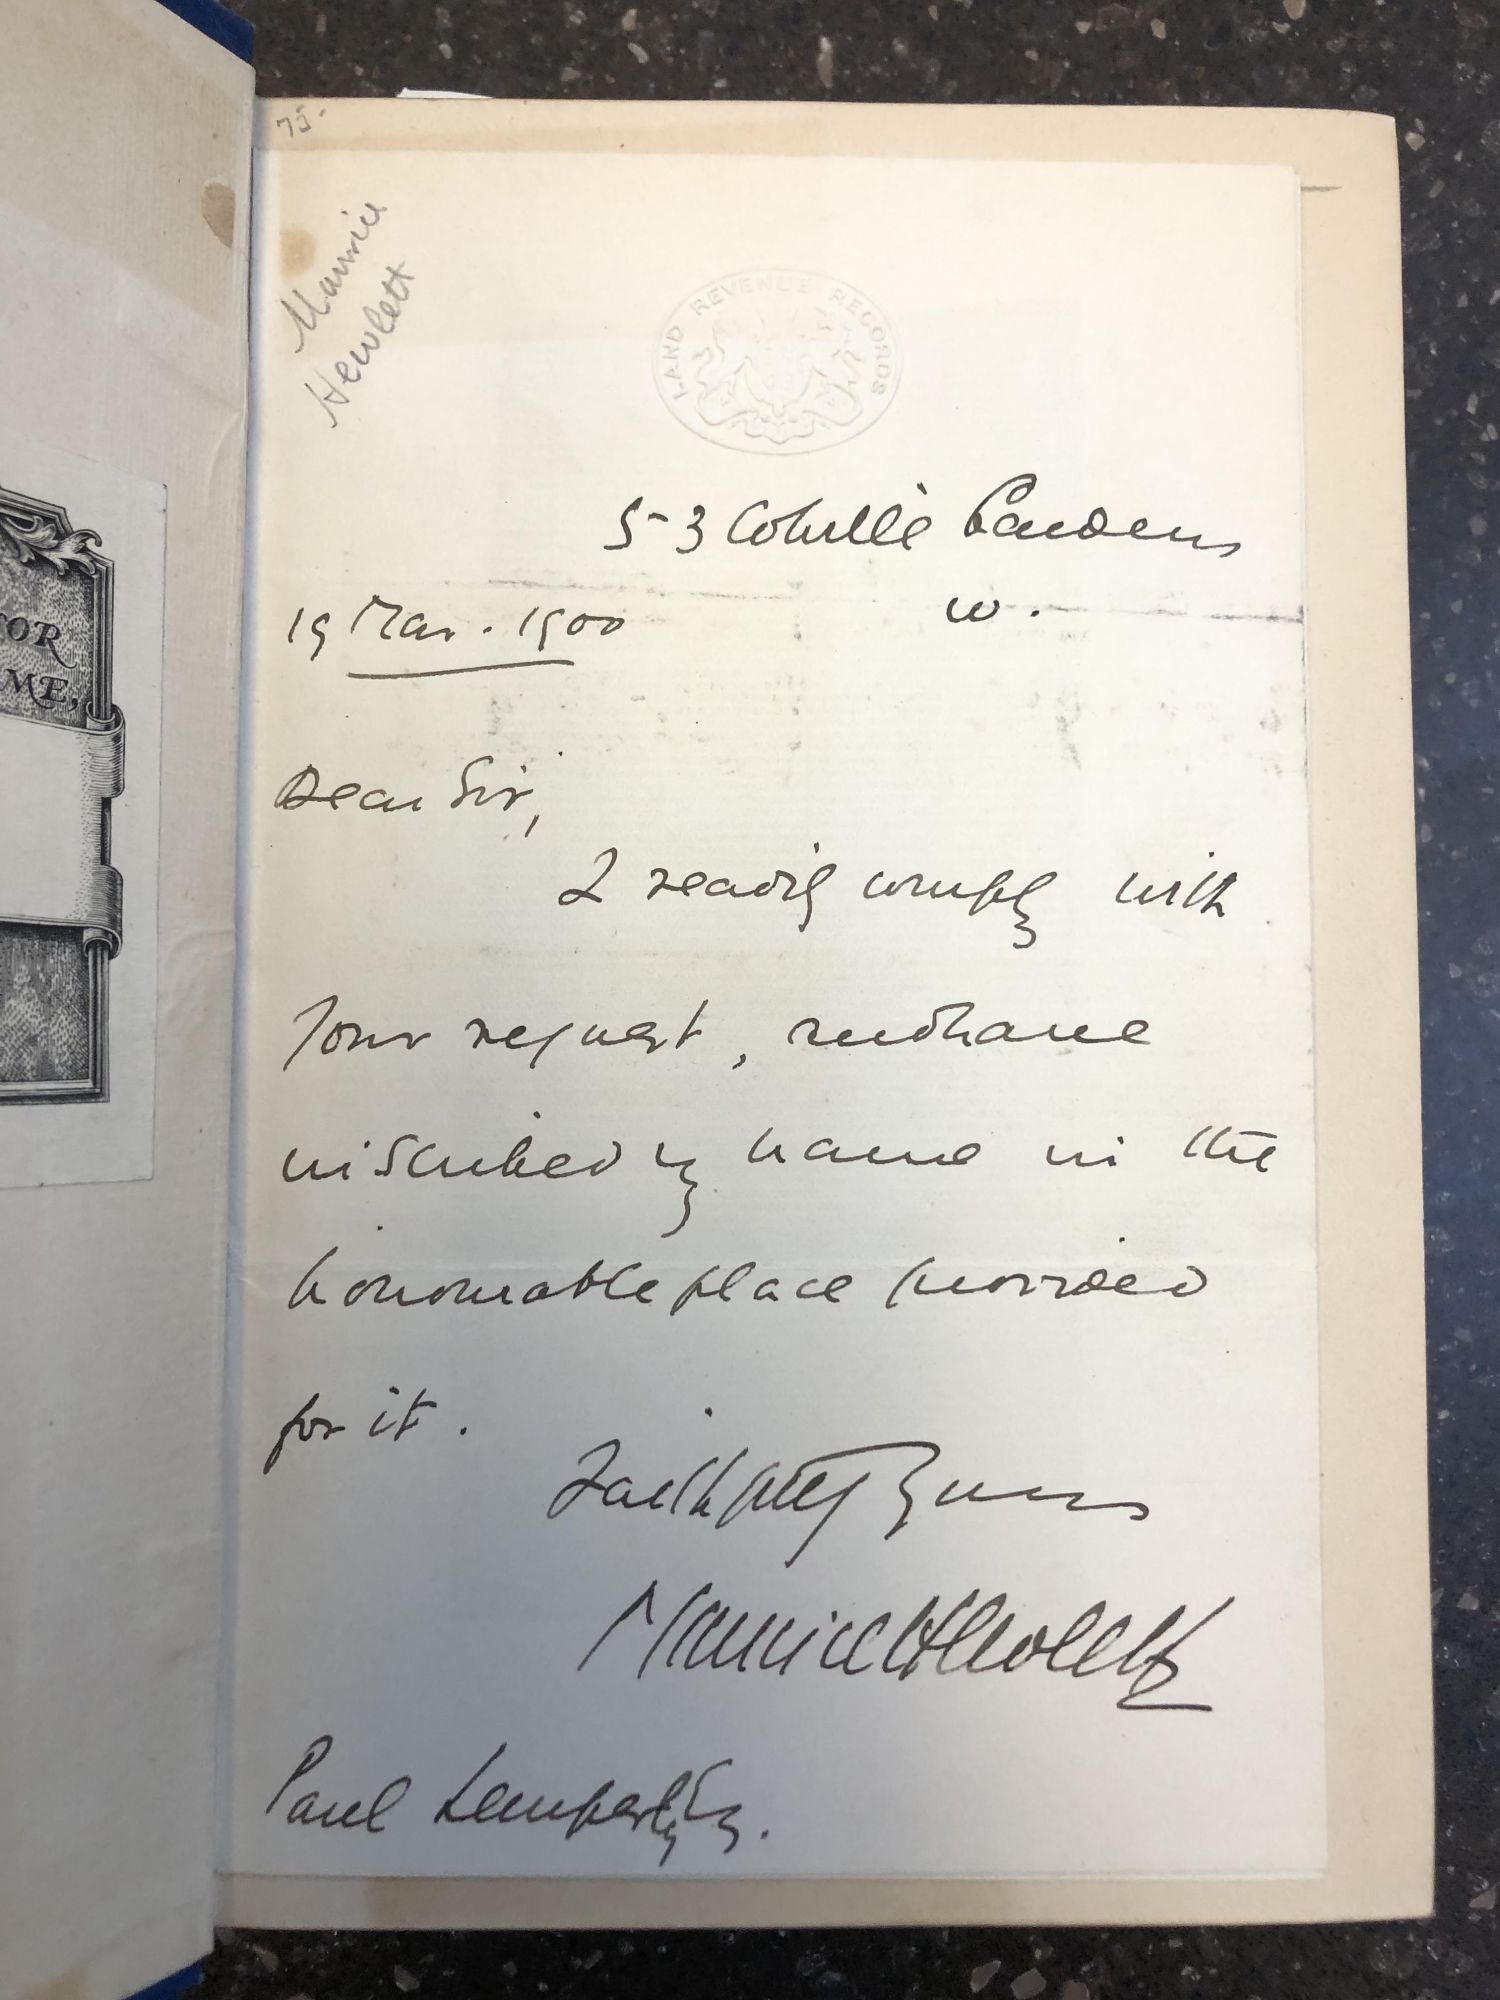 75-
Maurice
Hewlett
LAND REVENUE RECORDS
53 Colville Gardens
W.
19 Mar. 1900
Dear Sir,
I readily comply with
your request, and have
inscribed my name in the
honourable place provided
for it.
Faithfully Yours
Maurice Hewlett
Paul Lemperly Esq.
TOR
ME,